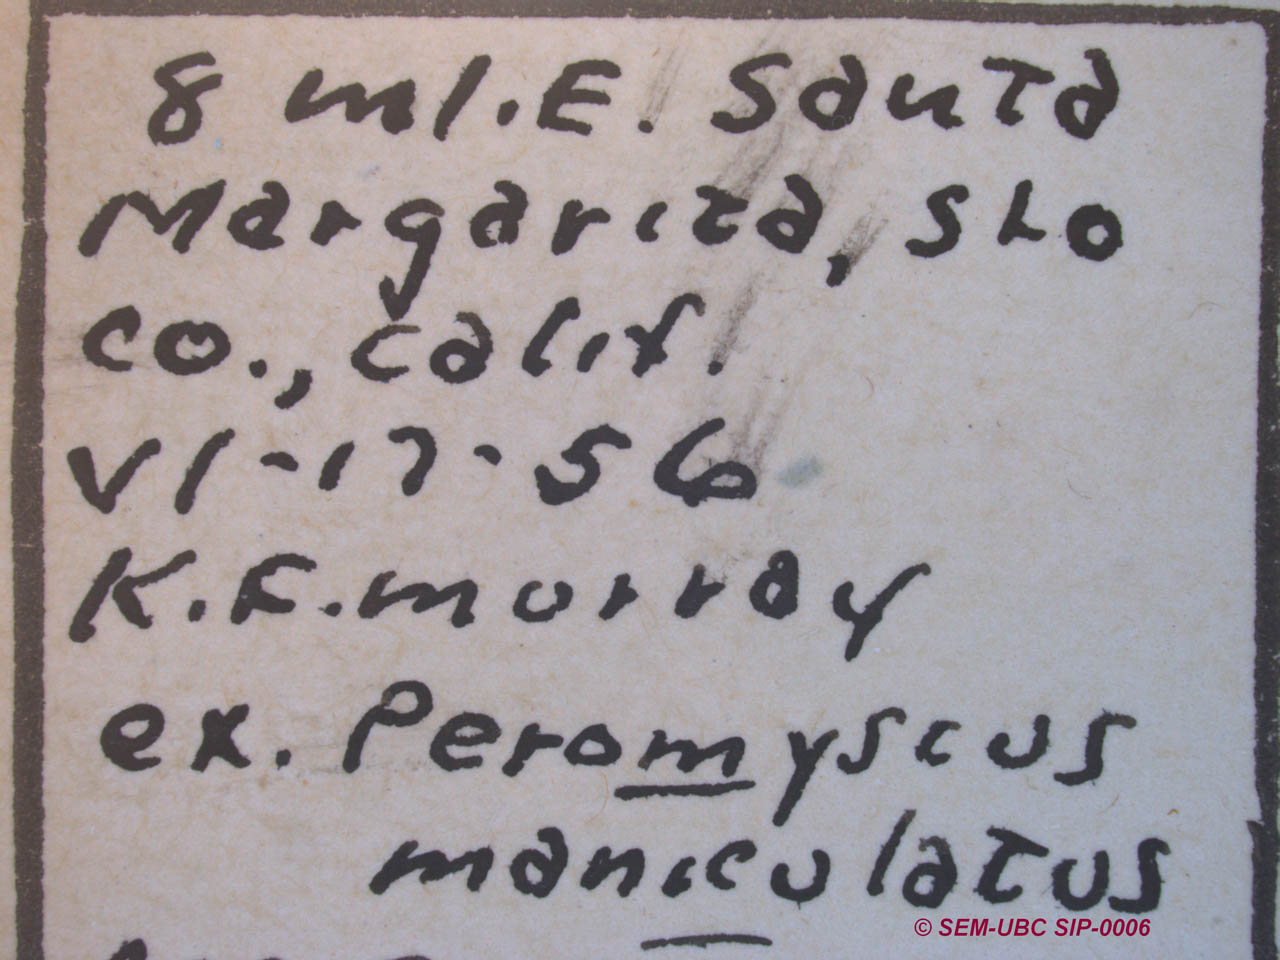 8 mi. E. Santa
Margarita, SLO
Co., Calif.
VI-17-56
K.F. Murray
ex. Peromyscus
maniculatus
© SEM-UBC SIP-0006